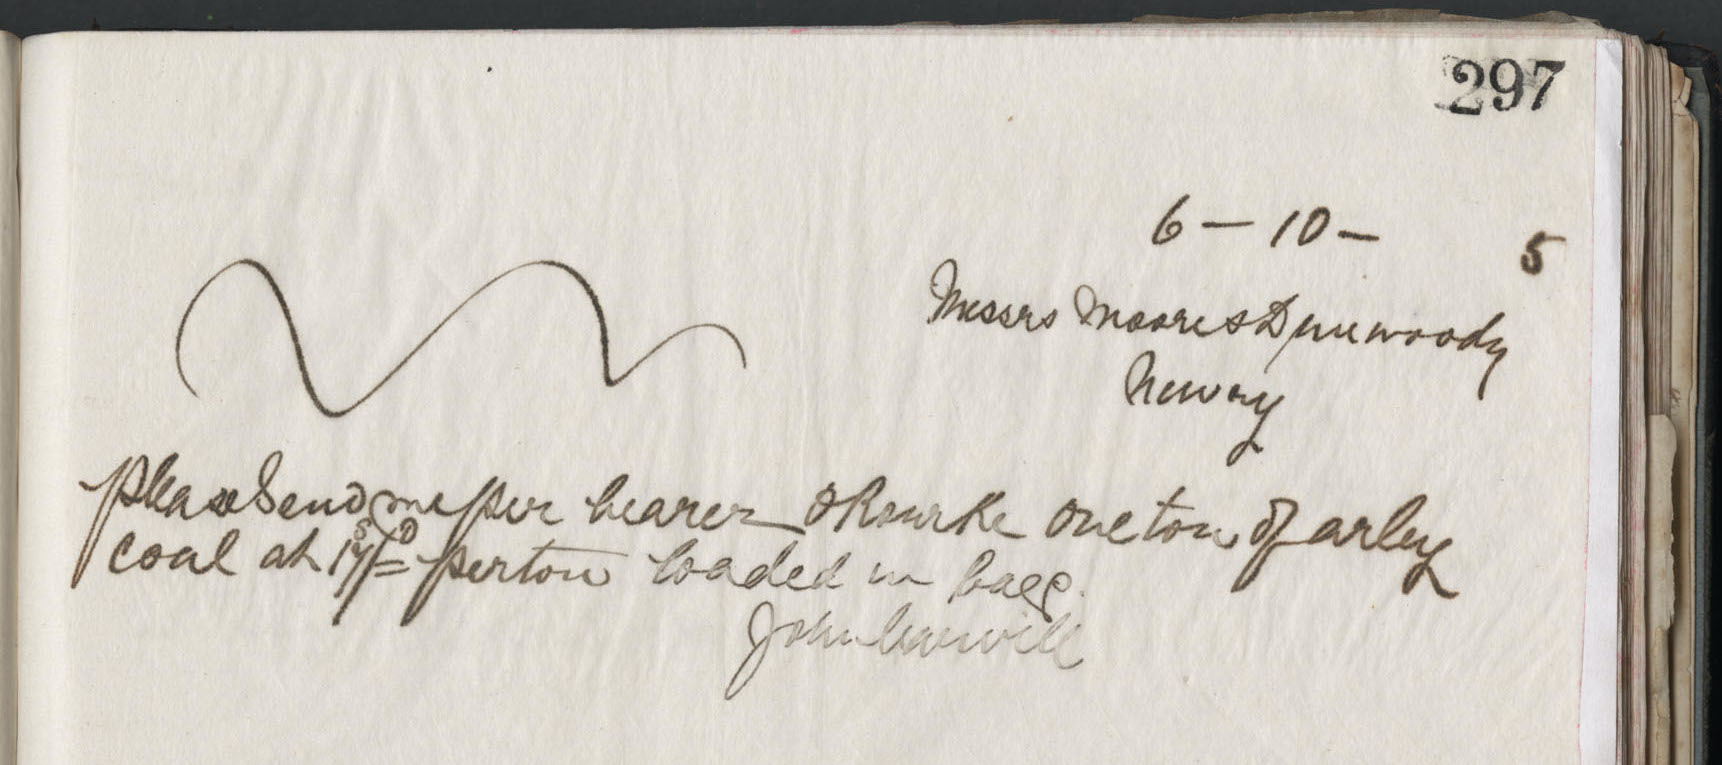 297
6 – 10 – 5
Messrs Moore & Dinwoody
Newry
please Send me per bearer O Rourke one ton of arley
coal at 17s/=D per ton loaded in bags.
John Carvill